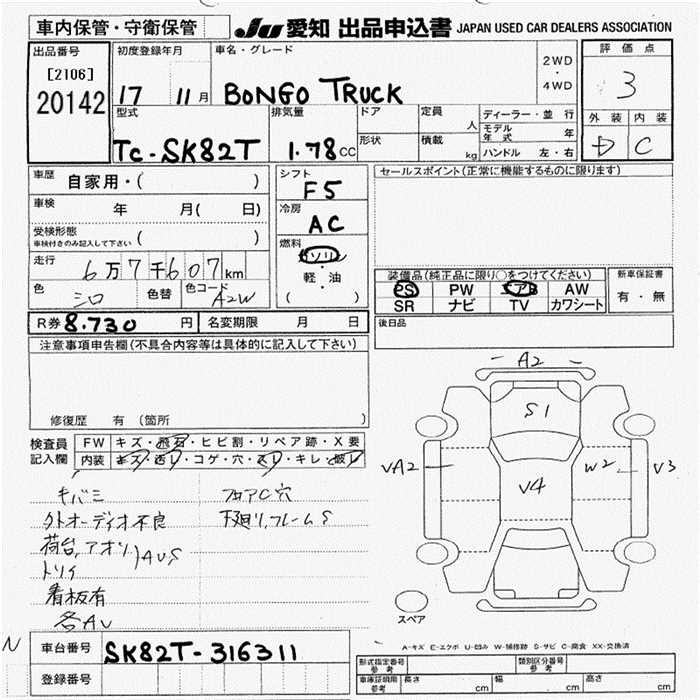 車内保管・守衛保管 JU 愛知 出品申込書 JAPAN USED CAR DEALERS ASSOCIATION
出品番号 初度登録年月 車名・グレード 評価点
[2106] 2WD
20142 17 11月 BONGO TRUCK ・ 3
4WD
型式 排気量 ドア 定員 人 ディーラー・並行 外装 内装
モデル年式 年
TC-SK82T 1.78cc 形状 積載 kg ハンドル 左・右 D C
車歴 自家用・( ) シフト F5 セールスポイント(正常に機能するものに限ります)
車検 年 月( 日) 冷房 AC
受検形態
車検付きのみ記入して下さい ( )
燃料 ガソリン
走行 6万7千607km ・
軽・油
( )
装備品(純正品に限り○をつけてください) 新車保証書
色 シロ 色替 色コード A2W
PS PW エアB AW 有・無
SR ナビ TV カワシート
R券 8.730円 名変期限 月 日 後日品
注意事項申告欄(不具合内容等は具体的に記入して下さい)
修復歴 有 (箇所 )
検査員 FW キズ・飛石・ヒビ割・リペア跡・X要
記入欄 内装 キズ・汚レ・コゲ・穴・スレ・キレ・破レ
キバミ フロアC穴
外トオーディオ不良 下廻り,フレームS
荷台,アオリ
AUS
トリイ
看板有
各AU
A2
S1
VA2 V4 W2 V3
スペア
N 車台番号 SK82T-316311
登録番号
A-キズ E-エクボ U-凹み W-補修跡 S-サビ C-腐食 XX-交換済
型式指定番号 参考 類別区分番号 参考
車庫証明用 参考 長さ cm 幅 cm 高さ cm